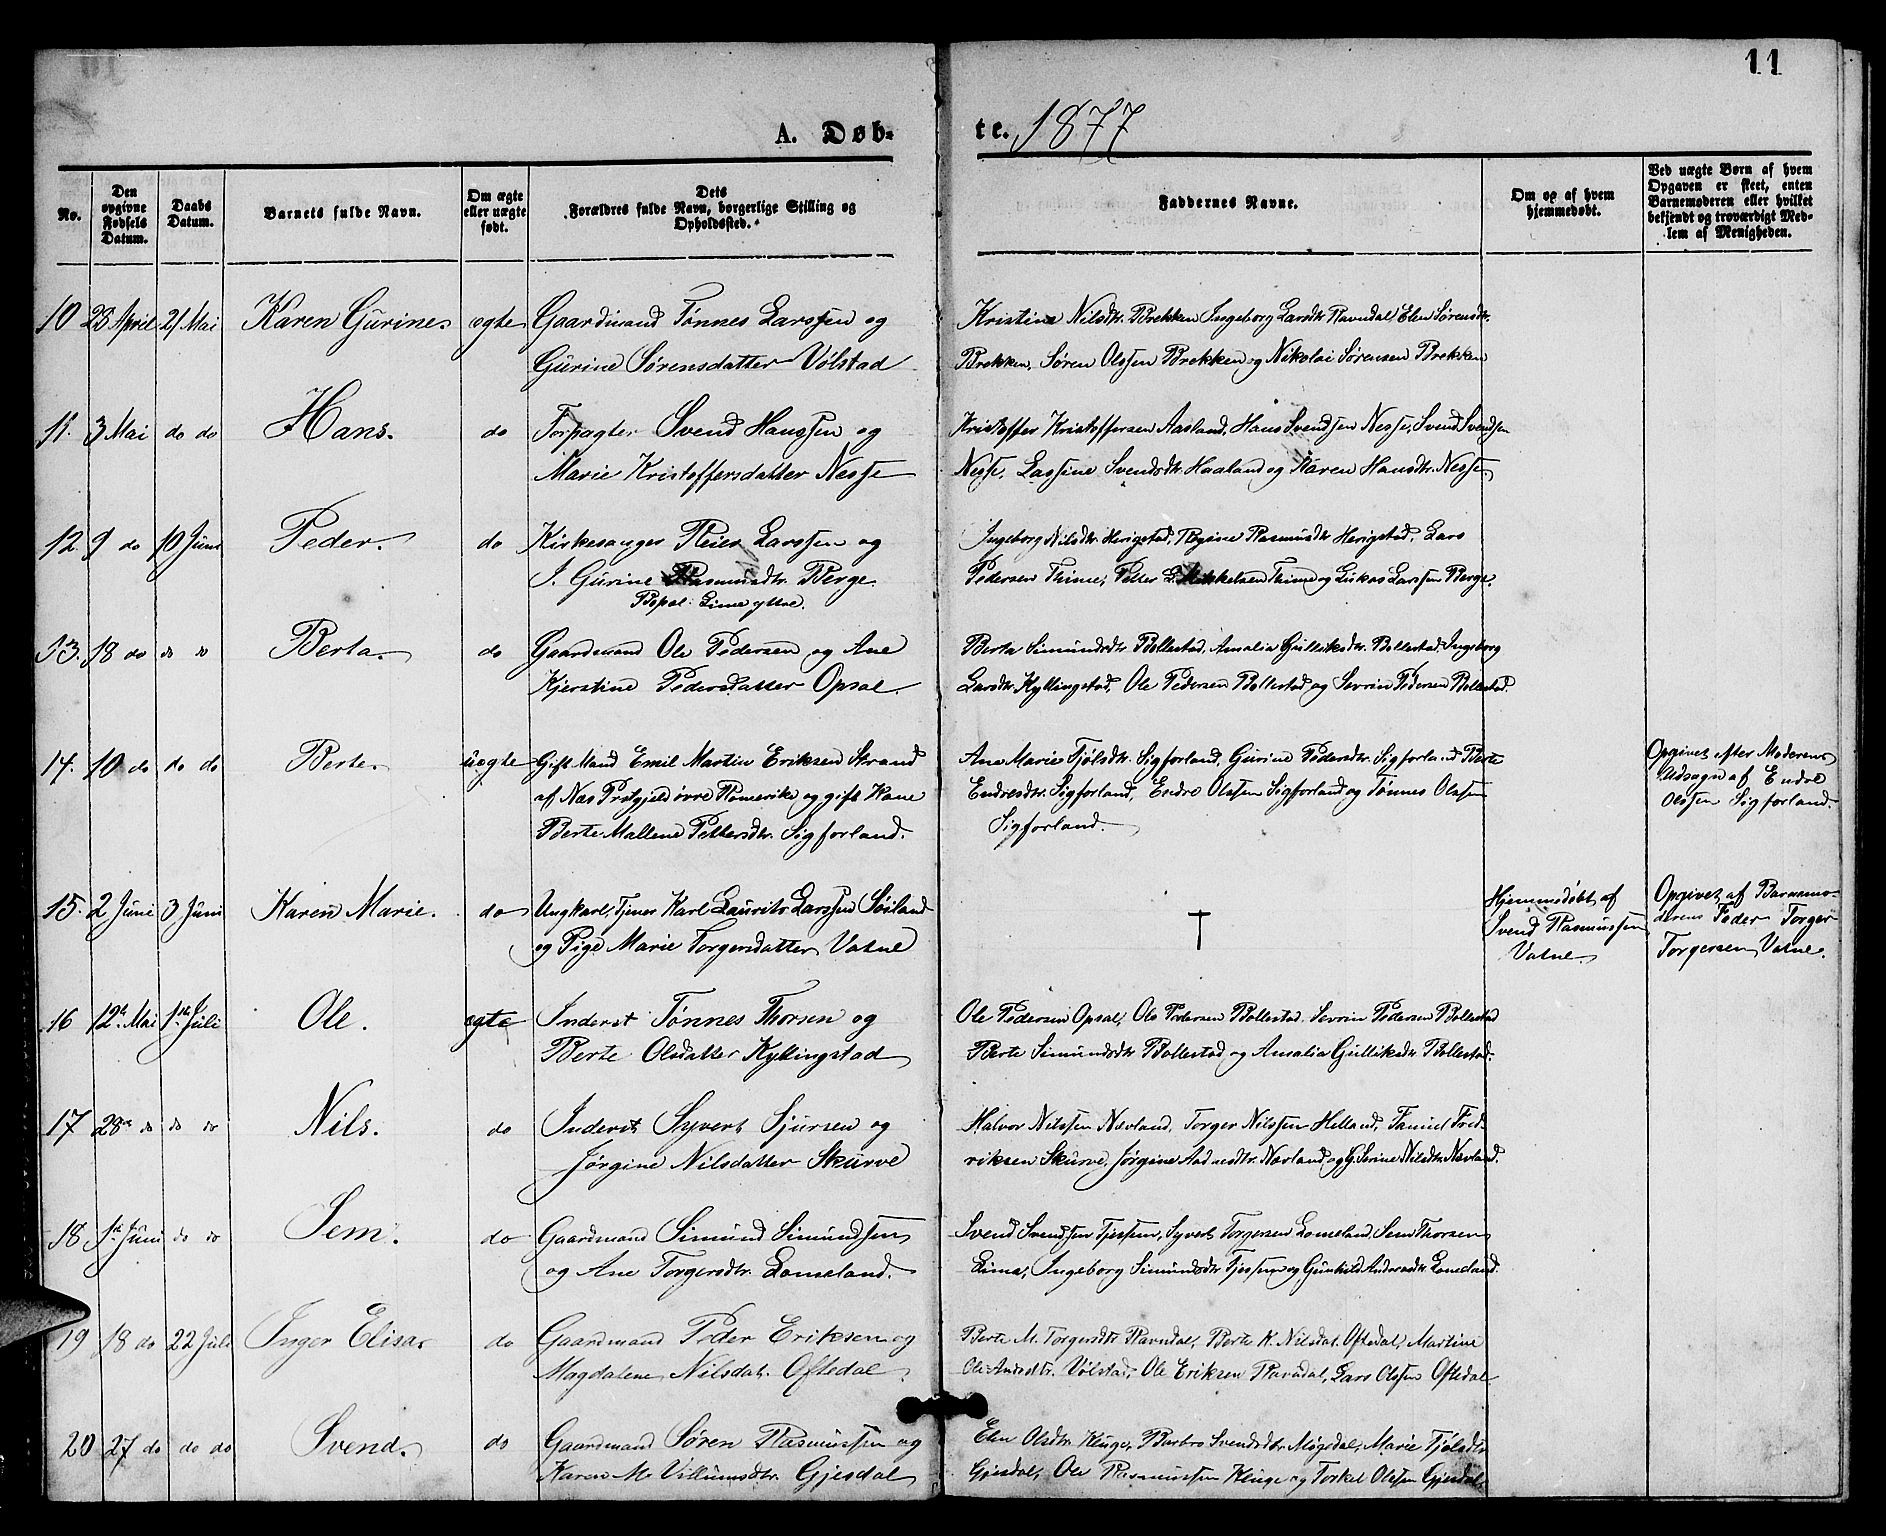 11
A. Døb-
te. 1877
No.
Den opgivne Fødsels Datum.
Daabs Datum.
Barnets fulde Navn.
Om ægte eller uægte født.
Dets Forældres fulde Navn, borgerlige Stilling og Opholdssted.
Faddernes Navne.
Om og af hvem hjemmedøbt.
Ved uægte Børn af hvem Opgaven er skeet, enten Barnemoderen eller hvilket bekjendt og troværdigt Medlem af Menigheden.
10 28 April 21 Mai Karen Gurine. ægte Gaardmand Tønnes Larssen og
Gurine Sørensdatter Vølstad
Kristine Nilsdtr. Brekken Ingeborg Larsdtr. Ravndal, Elen Sørensdtr.
Brekken, Søren Olssen Brekken og Nikolai Sørensen Brekken
11. 3 Mai do do Hans. do Forpagter Svend Hanssen og
Marie Kristoffersdatter Nesse
Kristoffer Kristoffersen Aasland, Hans Svendsen Nesse, Svend Svendsen
Nesse, Lassine Svendsdtr. Haaland og Karen Hansdtr. Nesse.
12 9 do 10 Juni Peder. do Kirkesanger Reier Larssen og
J. Gurine Rasmusdtr. Berge.
Bopæl: Lime yttre.
Ingeborg Nilsdtr. Herigstad, Rasmusdtr. Herigstad, Lars
Pedersen Thime, Petter L. Mikkelsen Thime og Liskas Larssen Berge.
13. 18 do do do Berta. do Gaardmand Ole Pedersen og Ane
Kjerstine Pedersdatter Opsal.
Berta Simundsdtr. Bollestad, Amalia Gulliksdtr. Bollestad, Ingeborg
Larsdtr. Kyllingstad, Ole Pedersen Bollestad og Sevrin Pedersen Bollestad.
14. 10 do do do Berte. uægte Gift Mand Emil Martin Eriksen Strand
af Næs Prstgjeld øvre Romerike og gift Kone
Berte Mallene Pettersdtr. Sigforland.
Ane Marie Tjølsdtr. Sigforland, Gurine Pedersdtr. Sigforland Berte
Endresdtr. Sigforland, Endre Olssen Sigforland og Tønnes Olssen
Sigforland.
Opgivet efter Moderens
Udsagn af Endre
Olssen Sigforland.
15. 2 Juni 3 Juni Karen Marie. do Ungkarl, Tjener Karl Laurits Larssen Søiland
og Pige Marie Torgersdatter Vatne
†
Hjemmedøbt af
Svend Rasmussen
Vatne.
Opgivet af Barnemo-
derens Fader Torger
Torgersen Vatne.
16 12te Mai 1ste Juli Ole. ægte Inderst Tønnes Thorsen og
Berte Olsdatter Kyllingstad
Ole Pedersen Opsal, Ole Pedersen Bollestad. Sevrin Pedersen Bollestad
Berte Simundsdtr Bollestad og Amalia Gulliksdtr Bollestad.
17 28de do do do Nils. do Inderst Syvert Sjursen og
Jørgine Nilsdatter Skurve
Halvor Nilssen Nævland, Torger Nilssen Helland, Fred-
riksen Skurve, Jørgine Aadnesdtr. Nævland og G. Serine Nilsdtr. Nævland.
18 1ste Juni do do Sem. do Gaardmand Simund Simundsen
og Ane Torgersdtr. Lomeland.
Svend Svendsen Tjessem, Syvert Torgersen Lomeland, Sem Thorsen
Lima, Ingeborg Simundsdtr Tjessem og Gunhild Andersdtr Lomeland.
19 18 do 22 Juli Inger Elisa. do Gaardmand Peder Eriksen og
Magdalene Nilsdat. Oftedal
Berte M. Torgersdtr Ravndal, Berte K. Nilsdat. Oftedal, Martine
Ole Amdtr. Vølstad, Ole Eriksen Ravndal, Lars Olssen Oftedal
20 27 do do do Svend. do Gaardmand Søren Rasmussen og
Karen M. Villumsdtr. Gjesdal
Elen Olsdtr. Kluge, Barbro Svendsdtr Møgedal, Marie Tjølsdtr
Gjesdal, Ole Rasmussen Kluge og Torkel Olssen Gjesdal.